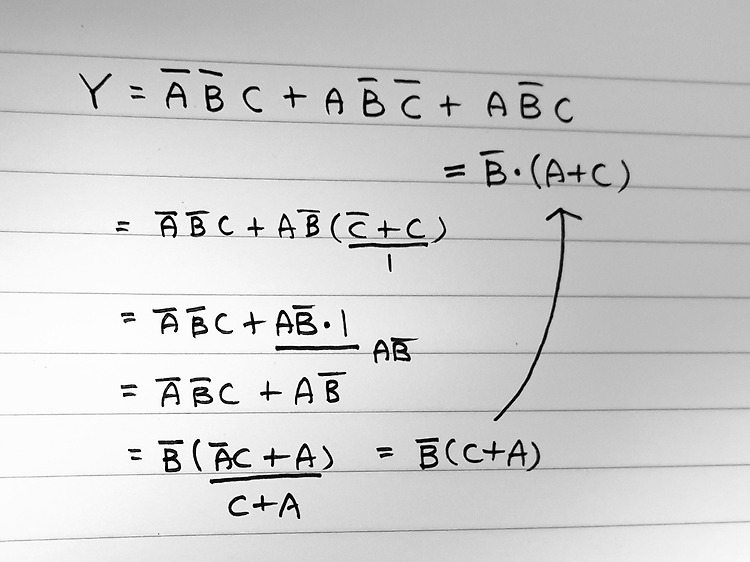 Y = A̅ B̅ C + A B̅ C̅ + A B̅ C
= B̅·(A+C)
= A̅ B̅ C + A B̅ (C̅ + C)
1
= A̅ B̅ C + A B̅·1
A B̅
= A̅ B̅ C + A B̅
= B̅ (A̅C + A) = B̅ (C+A)
C+A